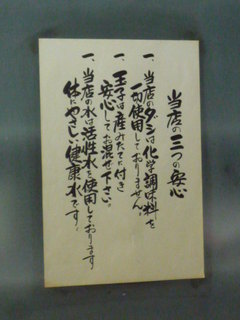 当店の三つの安心
一、当店のダシは化学調味料を
一切使用しておりません。
一、玉子は産みたてに付き
安心してお混ぜ下さい。
一、当店の水は活性水を使用しております
体にやさしい健康水です。